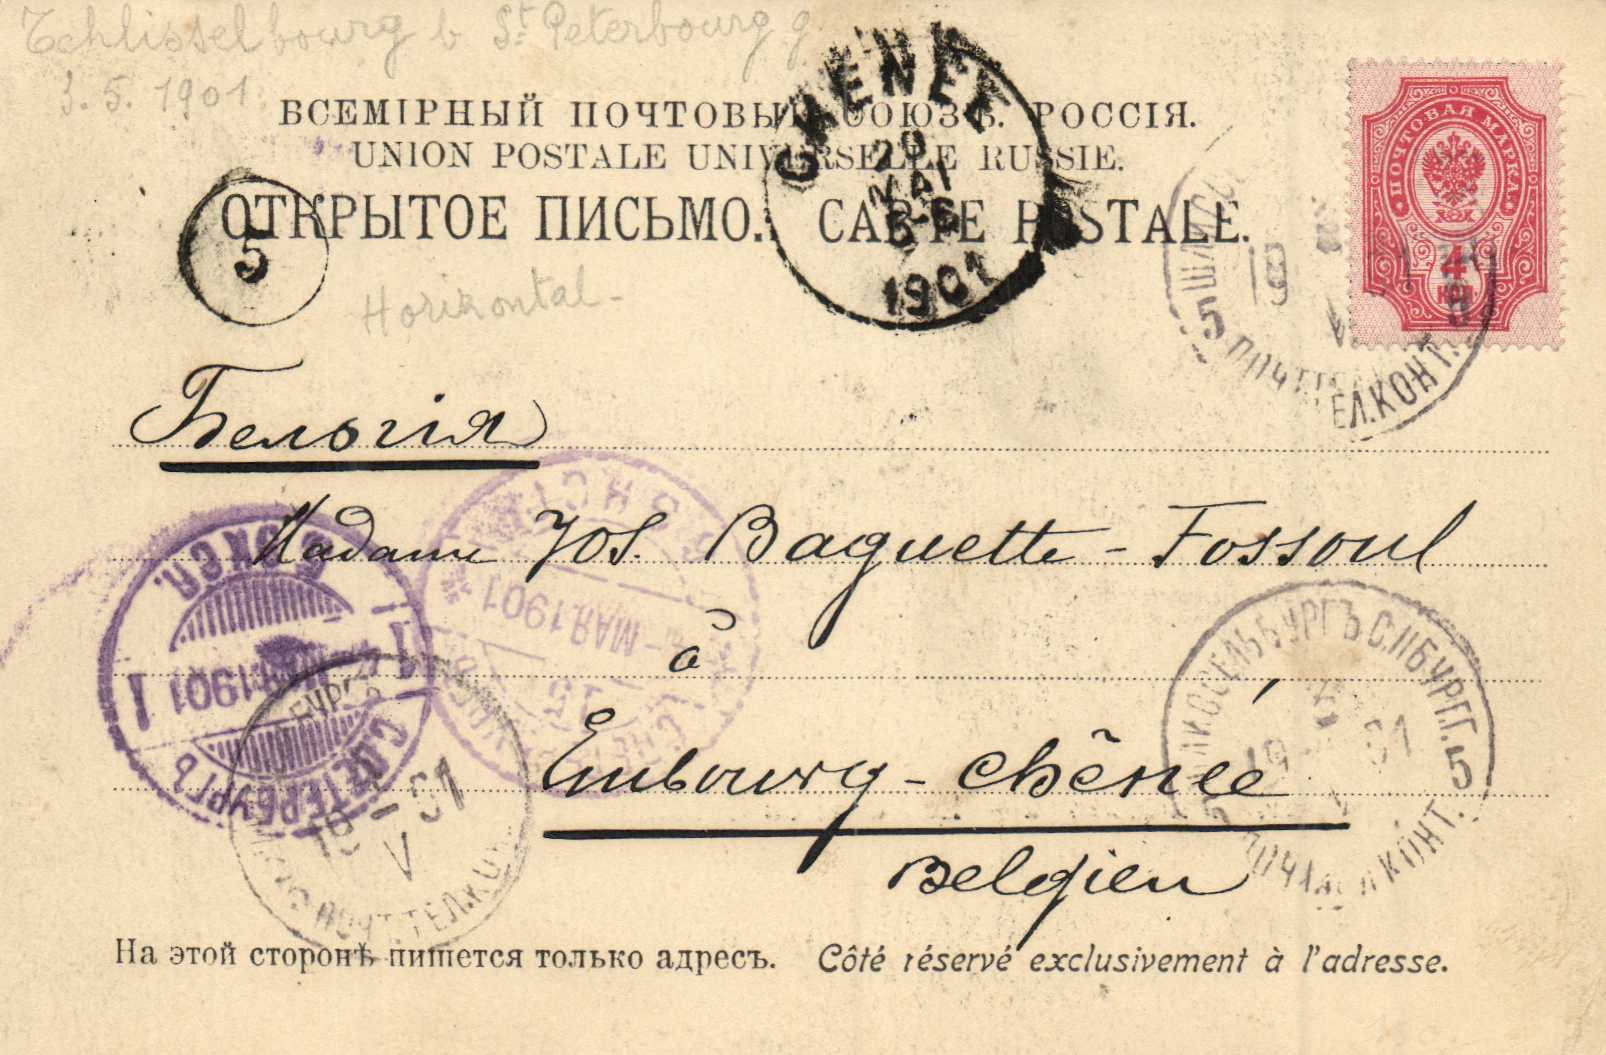 Schlisselbourg b St Peterbourg g
3. 5. 1901
ВСЕМІРНЫЙ ПОЧТОВЫЙ СОЮЗЪ. РОССІЯ.
UNION POSTALE UNIVERSELLE RUSSIE.
ОТКРЫТОЕ ПИСЬМО. CARTE POSTALE.
CHENEE
20
MAI
1901
5
ПОЧТОВАЯ МАРКА
4
КОП
19
5
ПОЧТ. ТЕЛ. КОНТ.
Horizontal -
Бельгія
Madame Jos. Baguette - Fossoul
à
Embourg - Chênée
Belgien
МАЯ 1901
15
1 1901 1
С.ПЕТЕРБУРГЪ
19 - 01
V
ПОЧТ. ТЕЛ. КО
ШЛИССЕЛЬБУРГЪ С.ПБУРГ.Г.
19 01
5 ПОЧТ. ТЕЛ. КОНТ. 5
На этой сторонѣ пишется только адресъ. Côté réservé exclusivement à l'adresse.